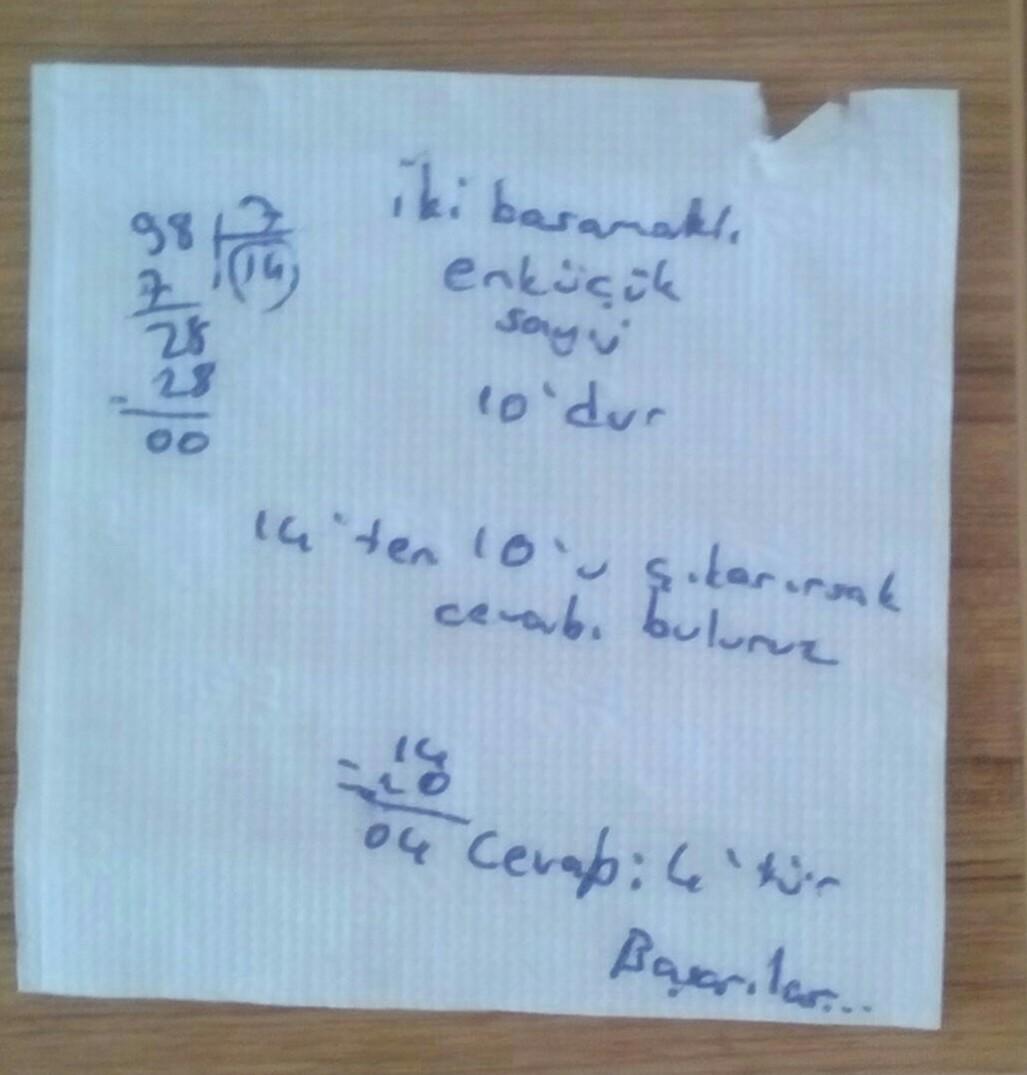 98 7
7 (14)
28
28
00
iki basamaklı
en küçük
sayı
10'dur
14'ten 10'u çıkarırsak
cevabı buluruz
14
- 10
04 Cevap: 4'tür
Başarılar...